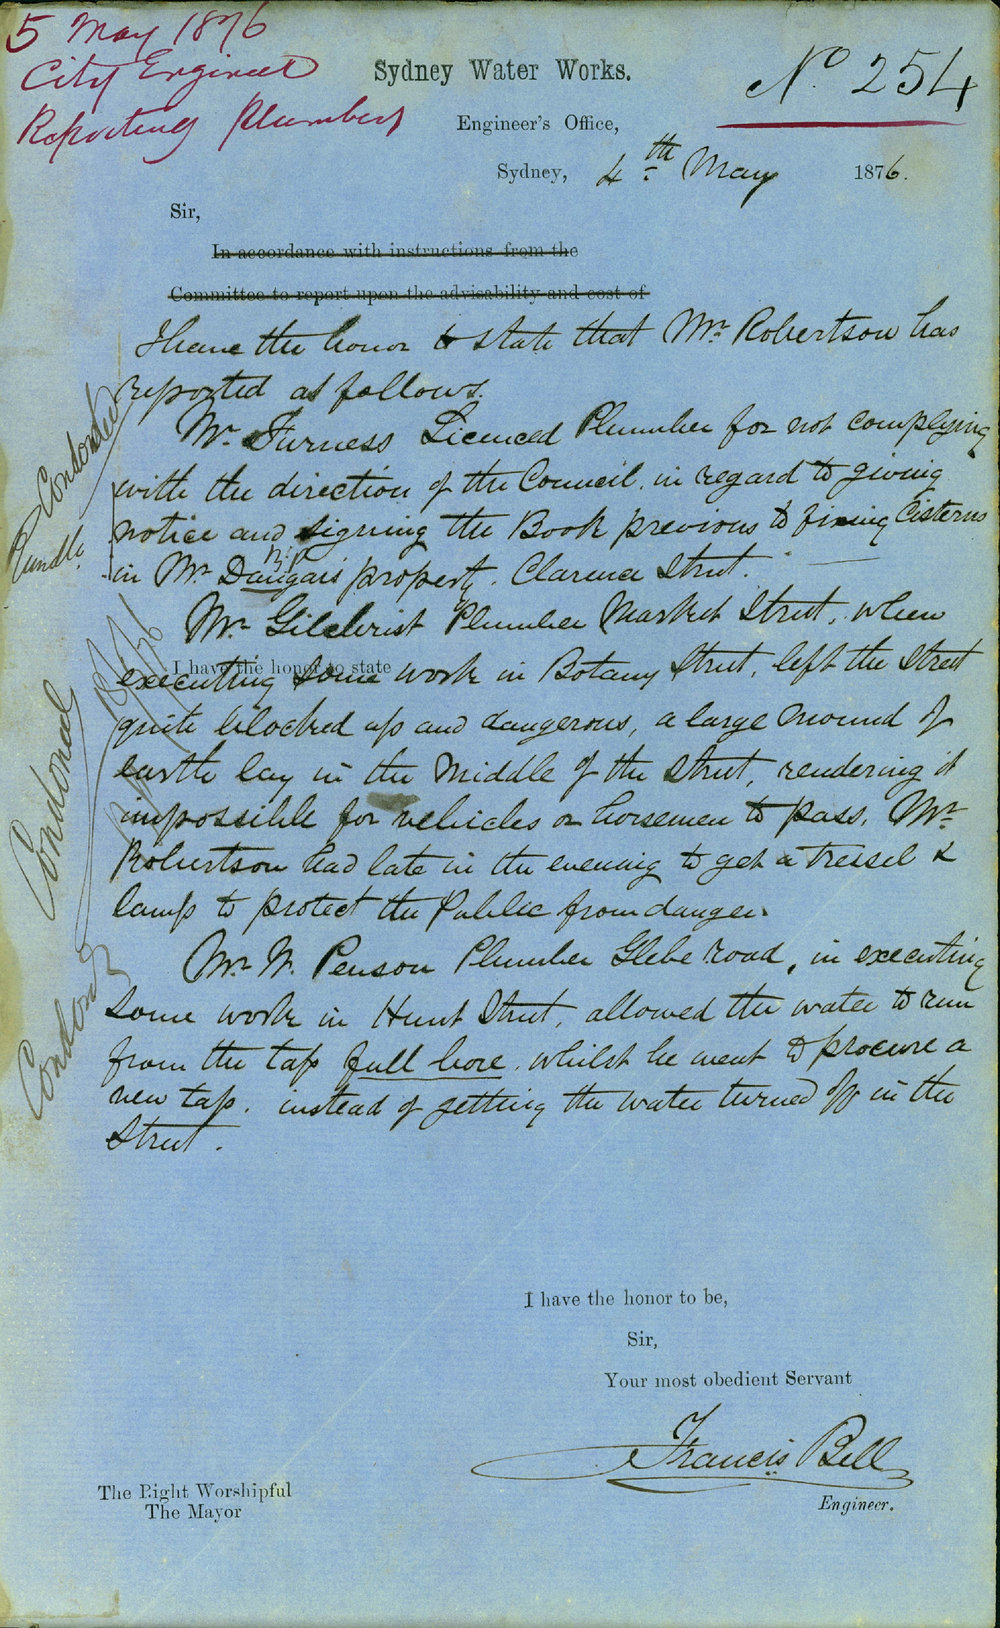 5 May 1876
City Engineer
Reporting Plumbers
No. 254
Sydney Water Works.
Engineer's Office,
Sydney, 4th May 1876.
Sir,
In accordance with instructions from the
Committee to report upon the advisability and cost of
I have the honor to state that Mr. Robertson has
reported as follows.
Mr. Furness Licenced Plumber for not complying
with the direction of the Council. in regard to giving
notice and signing the Book previous to fixing Cisterns
in Mr Dangar's property. Clarence Street.
Mr. Gilchrist Plumber Market Street, when
I have the honor to state
executing some work in Botany Street, left the Street
quite blocked up and dangerous, a large mound of
earth lay in the Middle of the Street, rendering it
impossible for vehicles or horsemen to pass. Mr
Robertson had late in the evening to get a tressel &
lamp to protect the Public from danger.
Mr. W. Penson Plumber Glebe road, in executing
some work in Hunt Street, allowed the water to run
from the tap full bore. whilst he went to procure a
new tap. instead of getting the water turned off in the
Street.
I have the honor to be,
Sir,
Your most obedient Servant
Francis Bell
Engineer.
The Right Worshipful
The Mayor